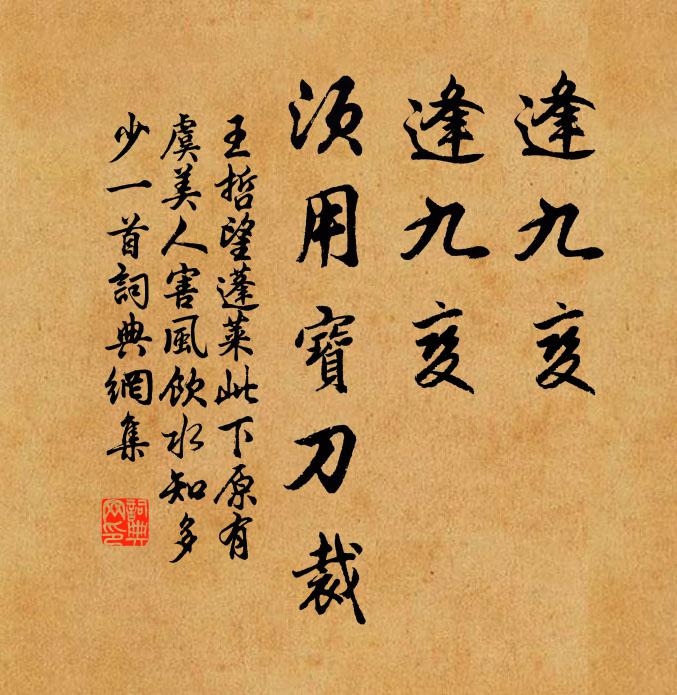 逢九变
逢九变
须用寶刀裁
王哲望蓬莱此下原有
虞美人害風飲水知多
少一首詞典網集
詞典網印